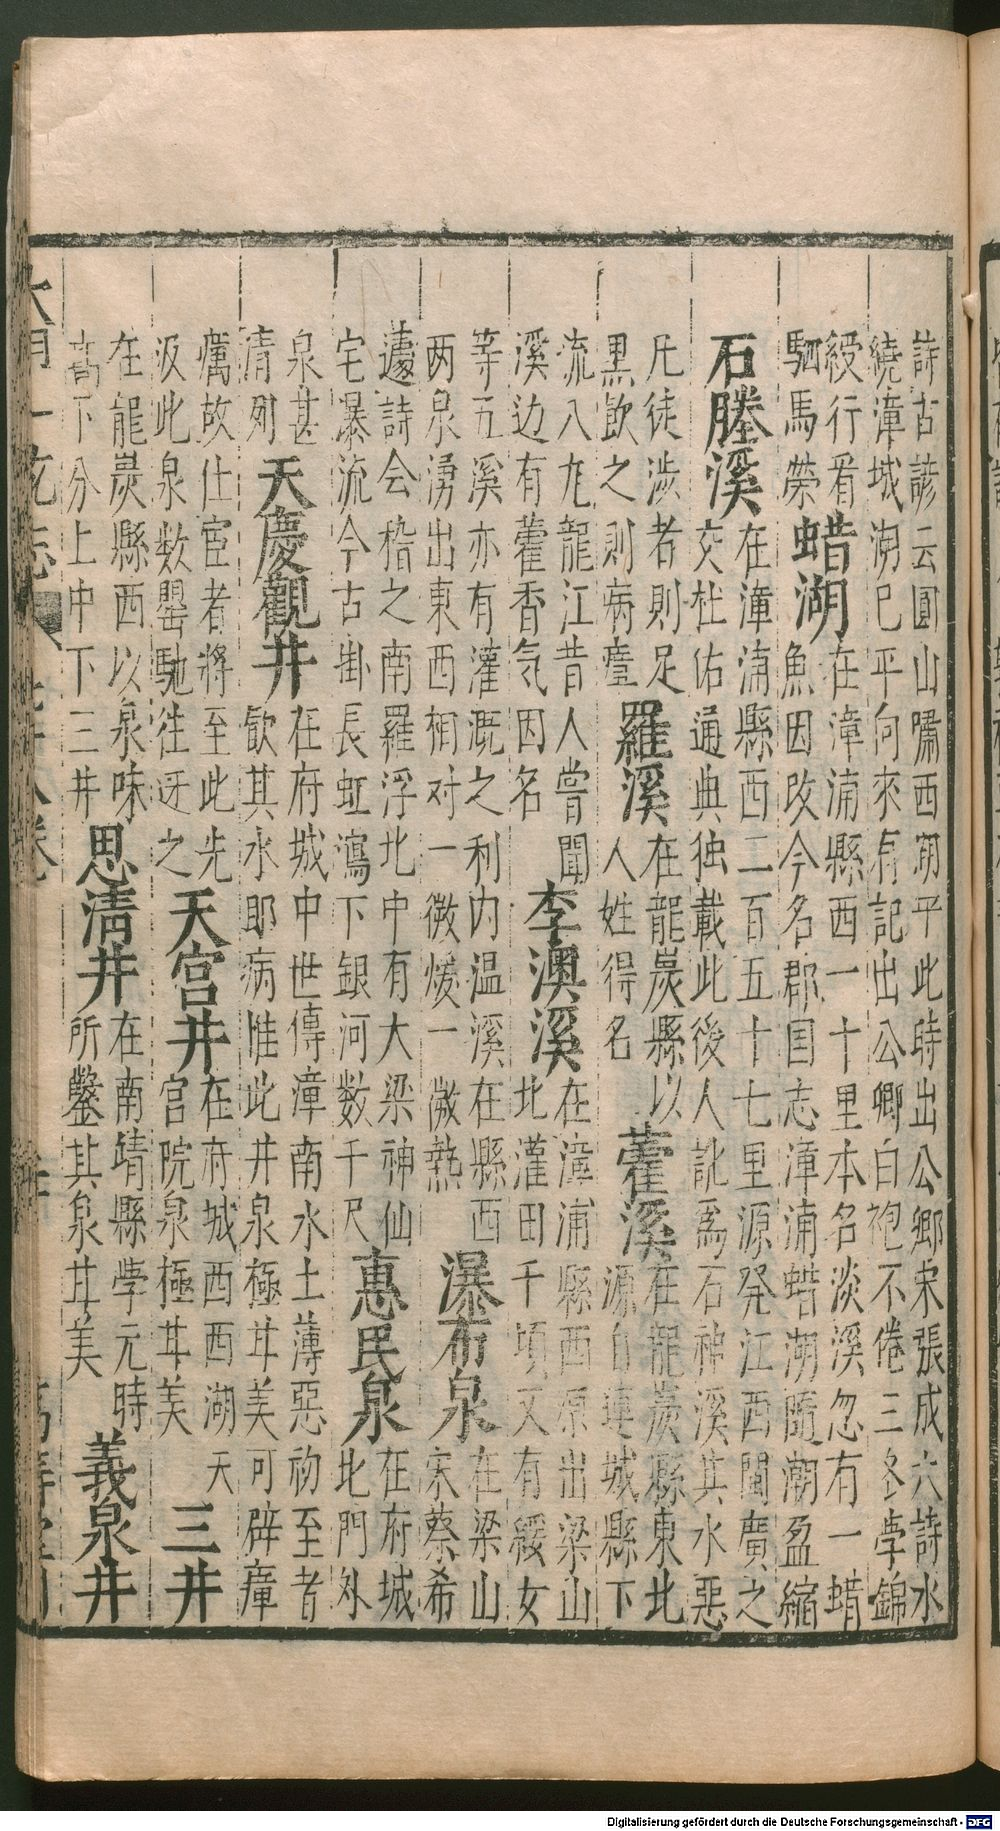 詩古諺云圓山嘯西湖平此時出公卿宋張成六詩水
繞漳城湖已平向來有記出公卿白袍不倦三冬學錦
綬行看
駟馬榮
蜡湖
在漳浦縣西一十里本名淡溪忽有一蜡
魚因改今名郡国志漳浦蜡湖随潮盈縮
石塍溪
在漳浦縣西二百五十七里源発江西閩廣之
交杜佑通典独載此後人訛為石神溪其水惡
凡徒涉者則足
黒飲之則病瘴
羅溪
在龍岩縣以
人姓得名
藿溪
在龍岩縣東北
源自連城縣下
流入九龍江昔人嘗聞
溪边有藿香気因名
李澳溪
在漳浦縣西原出梁山
北灌田千項又有綬女
等五溪亦有灌溉之利内温溪在縣西
两泉湧出東西相对一微煖一微熱
瀑布泉
在梁山
宋蔡希
蘧詩会稽之南羅浮北中有大梁神仙
宅瀑流今古掛長虹瀉下銀河数千尺
惠民泉
在府城
北門外
泉甚
清冽
天慶觀井
在府城中世傳漳南水土薄惡初至者
飲其水即病惟此井泉極甘美可辟瘴
癘故仕宦者將至此先
汲此泉数罌馳往迓之
天宫井
在府城西西湖天
宫院泉極甘美
三井
在龍岩縣西以泉味
高下分上中下三井
思清井
在南靖縣学元時
所鑿其泉甘美
義泉井
Digitalisierung gefördert durch die Deutsche Forschungsgemeinschaft - DFG